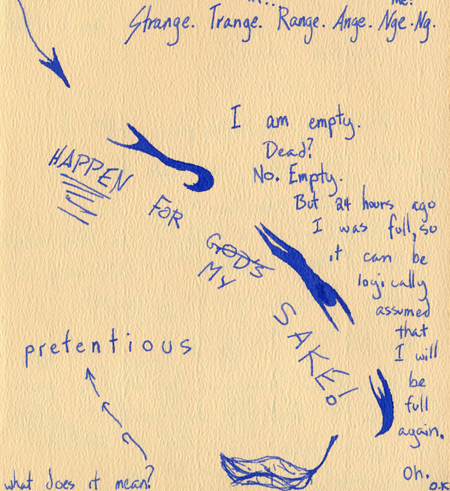 me!
Strange. Trange. Range. Ange. Nge. Ng.
I am empty.
Dead?
No. Empty.
But 24 hours ago
I was full, so
it can be
logically
assumed
that
I will
be
full
again.
Oh.
O.K
HAPPEN
FOR
GOD'S
MY
SAKE!
pretentious
what does it mean?